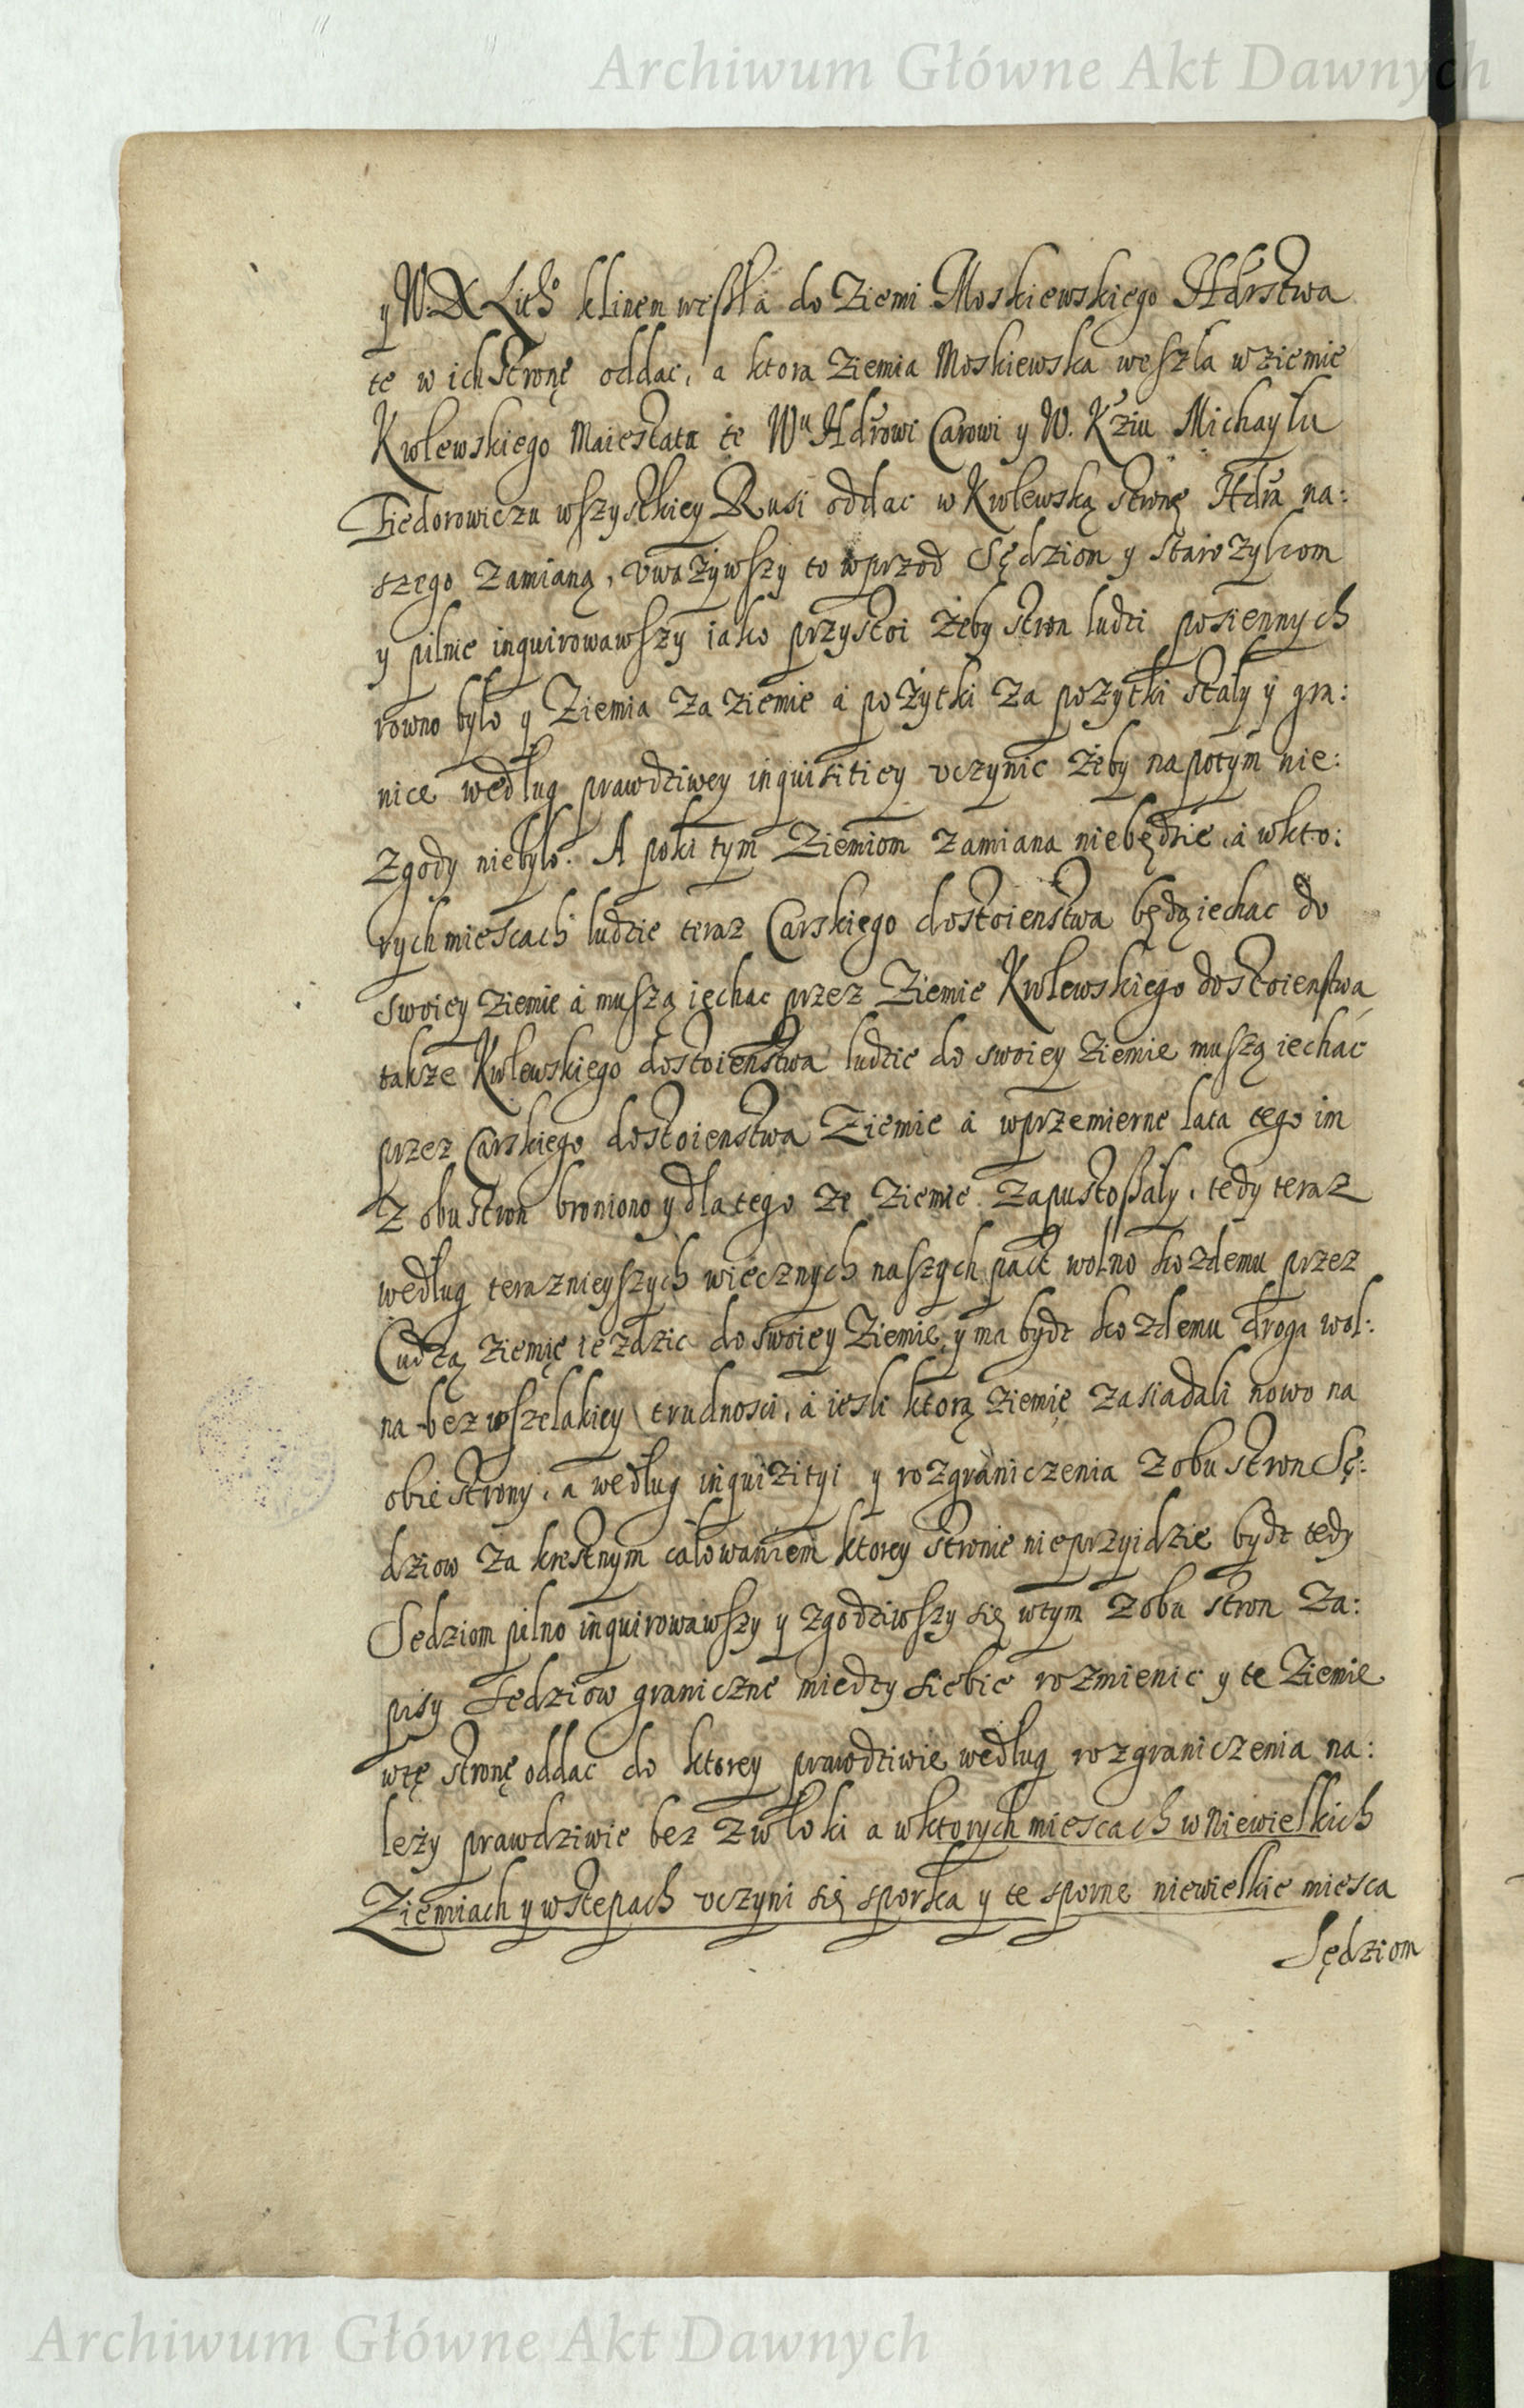 Archiwum Główne Akt Dawnych
y W. X Lith° klinem weszła do Ziemi Moskiewskiego Hdrstwa
te w ich stronę oddac, a ktora Ziemia Moskiewska weszla w ziemie
Krolewskiego Maiestatu te Wu Hdrowi Carowi y W. Kziu Michayłu
Fiedorowiczu wszystkiey Rusi oddac w Krolewską stronę Hdra na:
szego Zamianą, vważywszy to wprzod Sędziom y starożylcom
y pilnie inquirowawszy iako przystoi żeby stron ludzi posiennych
rowno było y Ziemia Za ziemie á pożytki Za pożytki stały y gra:
nice według prawdziwey inquisitiey vczynic żeby napotym nie:
zgody niebyło. A poki tym Ziemiom Zamiana niebędzie, á wkto:
rych miescach ludzie teraz Carskiego dostoienstwa będą iechac do
swoiey Ziemie á muszą iechac przez Ziemie Krolewskiego dostoienstwa,
także Krolewskiego dostoienstwa ludzie do swoiey Ziemie muszą iechac
przez Carskiego dostoienstwa Ziemie á wprzemierne lata tego im
Z obu stron broniono y dla tego te Ziemie Zapustoszały, tedy teraz
według teraznieyszych wiecznych naszych pact wolno kożdemu przez
Cudzą Ziemię ieździc do swoiey Ziemie, y ma bydz kożdemu droga wol:
na bez wszelakiey trudnosci, á iesli ktorą Ziemię Zasiadali nowo na
obie strony, a według inquizityi y rozgraniczenia Z obu stron Sę:
dziow Za krestnym całowaniem ktorey stronie nieprzyidzie bydz tedy
Sedziom pilno inquirowawszy y zgodziwszy się wtym Z obu stron Za:
pisy Sedziow graniczne miedzy siebie rozmienic y te Ziemie
wtę stronę oddac do ktorey prawdziwie według rozgraniczenia na:
leży prawdziwie bez Zwłoki a wktorych miescach w niewielkich
Ziemiach y wstepach vczyni się sporka y te sporne niewielkie miesca
Sędziom
Archiwum Główne Akt Dawnych